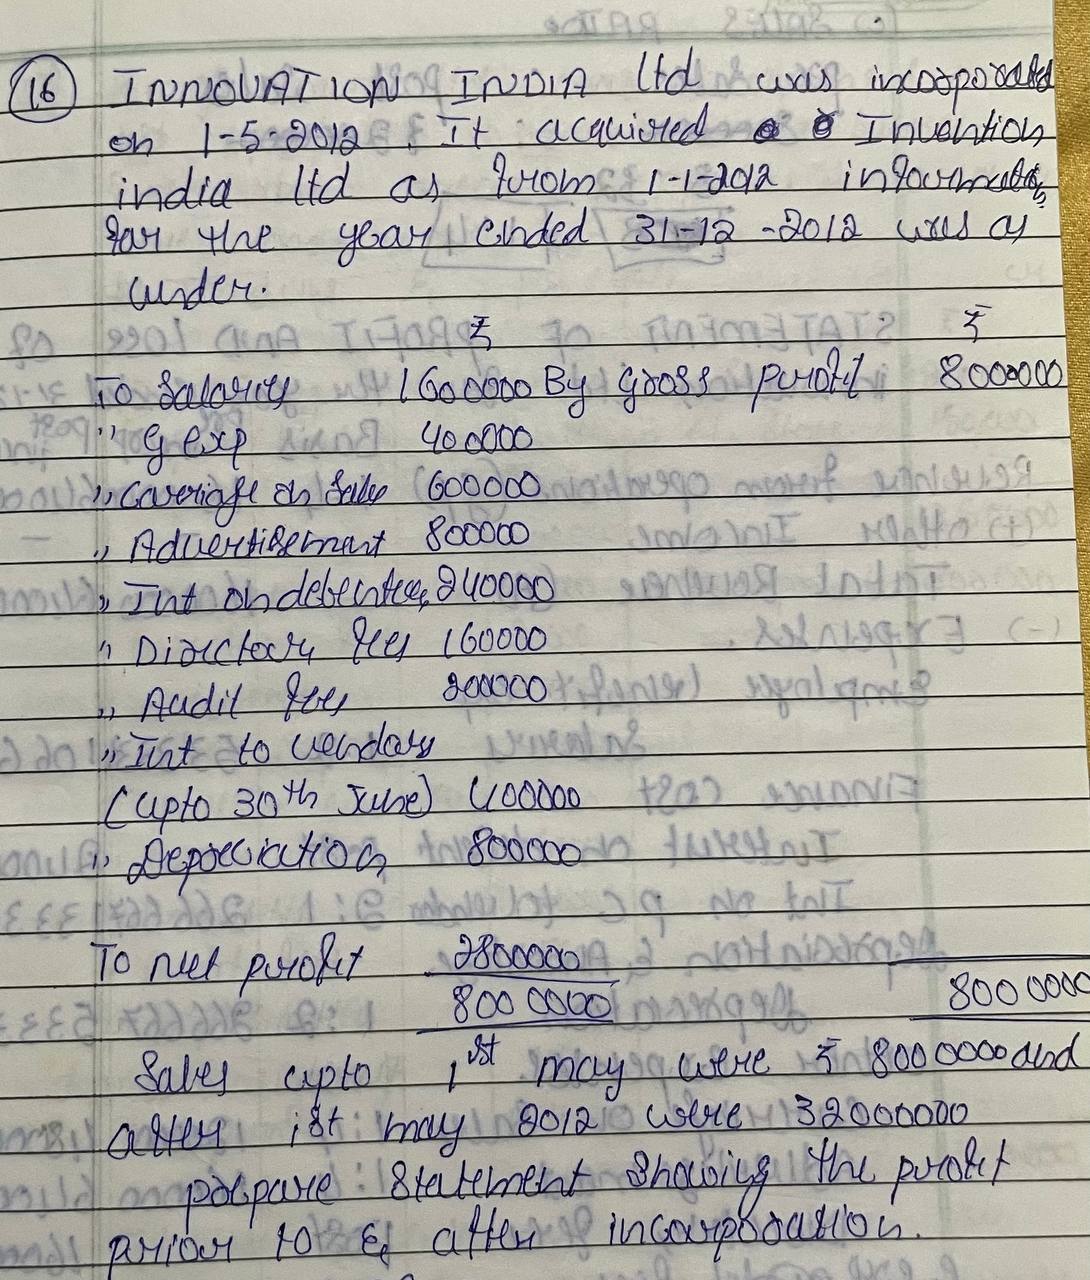 16 INNOVATION INDIA Ltd was incorporated
on 1-5-2012. It acquired Invention
india ltd as from 1-1-2012 information
for the year ended 31-12-2012 was as
under.
₹ ₹
To Salaries 1600000 By gross profit 8000000
" g exp 400000
" Carriage on Sales 600000
" Advertisement 800000
" Int on debentures 240000
" Directors fees 160000
" Audit fees 200000
" Int to vendors
(upto 30th June) 400000
" Depreciation 800000
To net profit 2800000
8000000 8000000
Sales upto 1st may were ₹ 8000000 and
after 1st may 2012 were 32000000
prepare Statement Showing the profit
prior to & after incorporation.